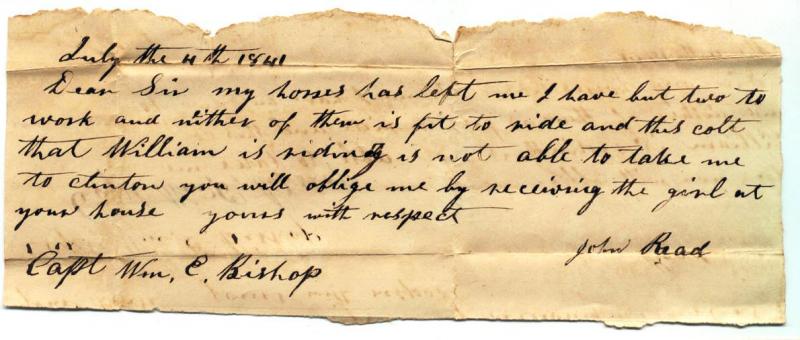 July the 4th 1841
Dear Sir my horses has left me I have but two to
work and neither of them is fit to ride and this colt
that William is riding is not able to take me
to clinton you will oblige me by receiving the girl at
your house yours with respect
John Read
Capt Wm, E. Bishop